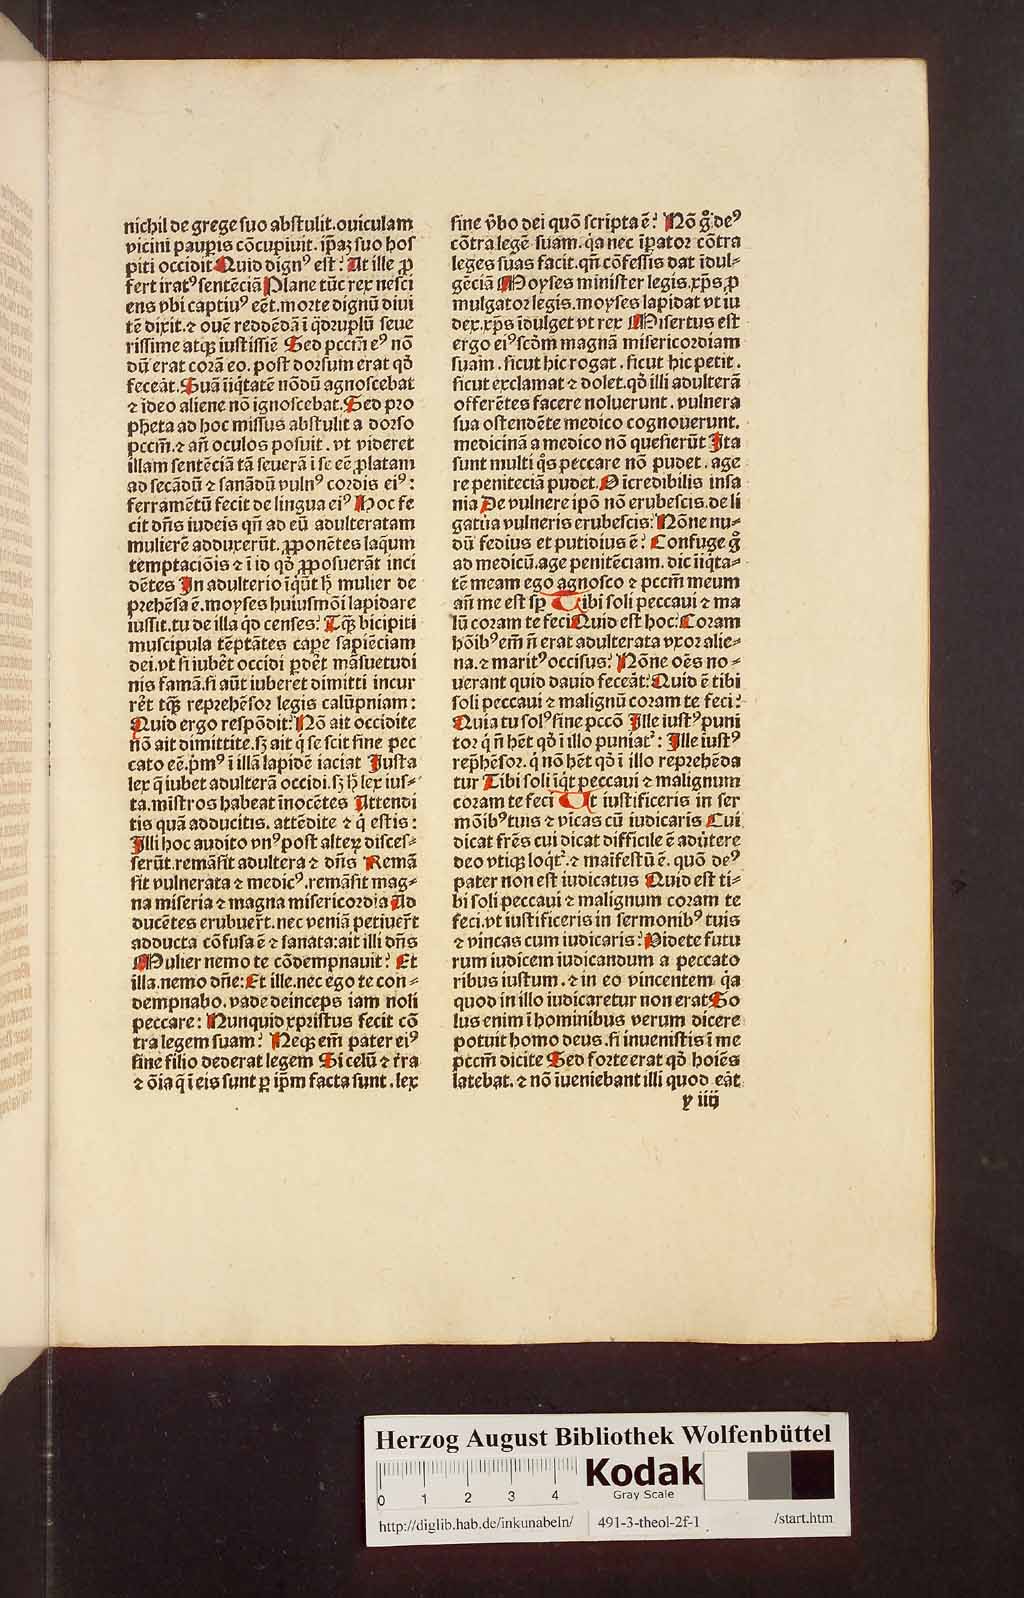 nichil de grege suo abstulit. ouiculam
vicini paupis cōcupiuit. ip̄aꝫ suo hos
piti occidit Quid dignꝰ est: At ille ꝓ
fert iratꝰ sentēciā Plane tūc rex nesci
ens vbi captiuꝰ eēt. morte dignū diui
tē dixit. ⁊ ouē reddēdā ī q̄druplū seue
rissime atqꝫ iustissīe Sed pccm̄ eꝰ nō
dū erat corā eo. post dorsum erat qd̓
feceāt. Suā īiq̄tatē nōdū agnoscebat
⁊ ideo aliene nō ignoscebat. Sed pro
pheta ad hoc missus abstulit a dorso
pccm̄. ⁊ an̄ oculos posuit. vt videret
illam sentēciā tā seuerā ī se eē ꝓlatam
ad secādū ⁊ sanādū vulnꝰ cordis eiꝰ:
ferramētū fecit de lingua eiꝰ Hoc fe
cit dn̄s iudeis qn̄ ad eū adulteratam
mulierē adduxerūt. ꝓponētes laq̄um
temptaciōis ⁊ ī id qd̓ ꝓposuerāt inci
dētes In adulterio īq̄ūt h̄ mulier de
prehēsa ē. moyses huiusmōi lapidare
iussit. tu de illa q̓d censes: Tqꝫ bicipiti
muscipula tēptātes cape sapiēciam
dei. vt si iubēt occidi pdēt māsuetudi
nis famā. si aūt iuberet dimitti incur
rēt tqꝫ reprehēsor legis calūpniam:
Quid ergo respōdit: Nō ait occidite
nō ait dimittite. sꝫ ait q̓ se scit sine pec
cato eē. p̄mꝰ ī illā lapidē iaciat Justa
lex q̄ iubet adulterā occidi. sꝫ h̄ lex ius⸗
ta. mīstros habeat īnocētes Attendi
tis quā adducitis. attēdite ⁊ q̓ estis:
Illi hoc audito vnꝰ post alteꝝ disces⸗
serūt. remāsit adultera ⁊ dn̄s Remā
sit vulnerata ⁊ medicꝰ. remāsit mag⸗
na miseria ⁊ magna misericordia Ad
ducētes erubuer̄t. nec veniā petiuer̄t
adducta cōfusa ē ⁊ sanata: ait illi dn̄s
Mulier nemo te cōdempnauit: Et
illa. nemo dn̄e: Et ille. nec ego te con⸗
dempnabo. vade deinceps iam noli
peccare: Nunquid xpristus fecit cō
tra legem suam: Neqꝫ em̄ pater eiꝰ
sine filio dederat legem Si celū ⁊ tr̄ra
⁊ ōia q̄ ī eis sunt ꝑ ip̄m facta sunt. lex
sine v̓bo dei quō scripta ē: Nō gͦ deꝰ
cōtra legē suam. q̓a nec īꝑator cōtra
leges suas facit. qn̄ cōfessis dat īdul⸗
gēciā Moyses minister legis. xp̄s ꝓ
mulgator legis. moyses lapidat vt iu
dex. xp̄s īdulget vt rex Misertus est
ergo eiꝰ scōm̄ magnā misericordiam
suam. sicut hic rogat. sicut hic petit.
sicut exclamat ⁊ dolet. qd̓ illi adulterā
offerētes facere noluerunt. vulnera
sua ostendēte medico cognouerunt.
medicinā a medico nō quesierūt Ita
sunt multi q̓s peccare nō pudet. age
re peniteciā pudet. O īcredibilis insa
nia De vulnere ipō nō erubescis. de li
gatura vulneris erubescis: Nōne nu⸗
dū fedius et putidius ē: Confuge gͦ
ad medicū. age penitēciam. dic īiq̄ta⸗
tē meam ego agnosco ⁊ pccm̄ meum
an̄ me est sp̄ Tibi soli peccaui ⁊ ma
lū coram te feci Quid est hoc: Coram
hōibꝰ em̄ n̄ erat adulterata vxor alie⸗
na. ⁊ maritꝰ occisus: Nōne oēs no⸗
uerant quid dauid feceāt: Quid ē tibi
soli peccaui ⁊ malignū coram te feci:
Quia tu solꝰ sine pccō Ille iustꝰ puni
tor q̓ n̄ hēt qd̓ ī illo puniatᷣ: Ille iustꝰ
rep̄hēsor. q̓ nō hēt qd̓ ī illo reprehēda
tur Tibi soli īq̓t peccaui ⁊ malignum
coram te feci Ut iustificeris in ser
mōibꝰ tuis ⁊ vīcas cū iudicaris Cui
dicat fr̄es cui dicat difficile ē adūtere
deo vtiqꝫ loq̓tᷣ. ⁊ maīfestū ē. quō deꝰ
pater non est iudicatus Quid est ti⸗
bi soli peccaui ⁊ malignum coram te
feci. vt iustificeris in sermonibꝰ tuis
⁊ vincas cum iudicaris: Videte futu
rum iudicem iudicandum a peccato
ribus iustum. ⁊ in eo vincentem q̓a
quod in illo iudicaretur non erat So
lus enim ī hominibus verum dicere
potuit homo deus. si inuenistis ī me
pccm̄ dicite Sed forte erat qd̓ hoiēs
latebat. ⁊ nō īueniebant illi quod eāt
y iiij
Herzog August Bibliothek Wolfenbüttel
0 1 2 3 4
Kodak
Gray Scale
http://diglib.hab.de/inkunabeln/ 491-3-theol-2f-1 /start.htm